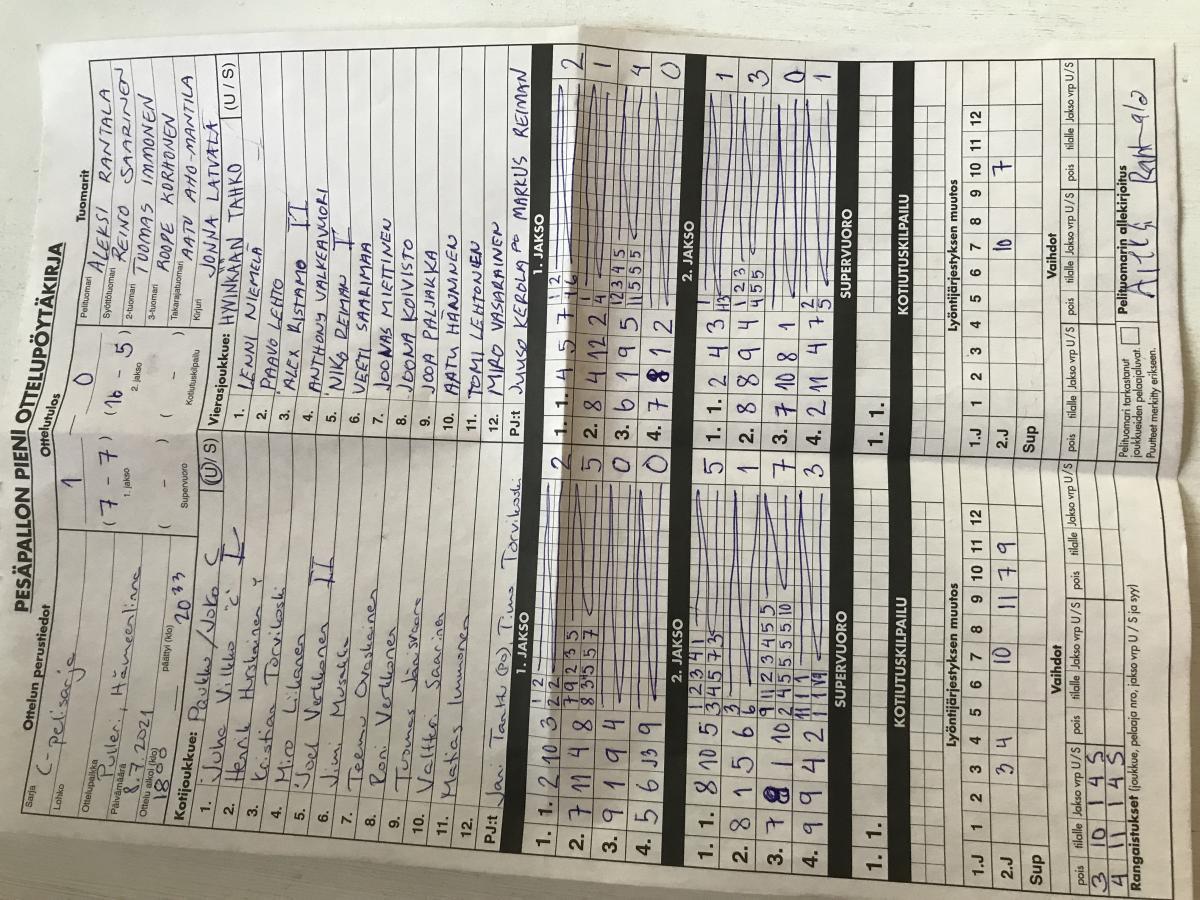 PESÄPALLON PIENI OTTELUPÖYTÄKIRJA
Ottelun perustiedot
Ottelutulos
Tuomarit
Sarja
C-pelisarja
Lohko
Ottelupaikka
Pulleri, Hämeenlinna
Päivämäärä
8.7.2021
Ottelu alkoi (klo)
1800
päättyi (klo)
2033
1 – 0
( 7 – 7 ) ( 16 – 5 )
1. jakso 2. jakso
( – ) ( – )
Supervuoro Kotiutuskilpailu
Pelituomari ALEKSI RANTALA
Syöttötuomari REINO SAARINEN
2-tuomari TUOMAS IMMONEN
3-tuomari ROOPE KORHONEN
Takarajatuomari AATU AHO-MANTILA
Kirjuri JONNA LATVALA
Kotijoukkue: Paukku/JoKo C (U / S)
1. Juho Vilkko "C" I
2. Henrik Hurskainen
3. Kristian Torvikoski
4. Miro Liikanen
5. Joel Verkkonen II
6. Jimi Mustila
7. Teemu Ovaskainen
8. Roni Verkkonen
9. Tuomas Jänisvaara
10. Valtteri Saarinen
11. Matias Immonen
12.
PJ:t Jani Tanttu (PO) Timo Torvikoski
Vierasjoukkue: HYVINKÄÄN TAHKO (U / S)
1. LENNI NIEMELÄ
2. PAAVO LEHTO
3. ALEX RISTAMO II
4. ANTHONY VALKEAVUORI
5. NIKO REIMAN I
6. VEETI SAARIMAA
7. JOONAS MIETTINEN
8. JOONA KOIVISTO
9. JOOA PALJAKKA
10. AATU HÄNNINEN
11. TOMI LEHTONEN
12. MIRO VASARAINEN
PJ:t JUUSO KEROLA PO MARKUS REIMAN
1. JAKSO
1. 1. 2 10 3 2
2. 7 11 4 8 5
3. 9 1 9 4 0
4. 5 6 13 9 0
2. JAKSO
1. 1. 8 10 5 5
2. 8 1 5 6 1
3. 7 8 1 10 7
4. 9 9 4 2 3
SUPERVUORO
1. 1.
KOTIUTUSKILPAILU
1. JAKSO
1. 1. 4 5 7 2
2. 8 4 12 2 1
3. 6 1 9 5 4
4. 7 8 1 2 0
2. JAKSO
1. 1. 2 4 3 1
2. 8 8 9 4 3
3. 7 10 8 1 0
4. 2 11 4 7 1
SUPERVUORO
1. 1.
KOTIUTUSKILPAILU
Lyöntijärjestyksen muutos
1.J 1 2 3 4 5 6 7 8 9 10 11 12
2.J 3 4 10 11 7 9
Sup
Vaihdot
pois tilalle Jakso vrp U/S pois tilalle Jakso vrp U/S pois tilalle Jakso vrp U/S
3 10 1 4 S
4 11 1 4 S
Rangaistukset (joukkue, pelaaja nro, jakso vrp U / S ja syy)
Lyöntijärjestyksen muutos
1.J 1 2 3 4 5 6 7 8 9 10 11 12
2.J 10 7
Sup
Vaihdot
pois tilalle Jakso vrp U/S pois tilalle Jakso vrp U/S pois tilalle Jakso vrp U/S
Pelituomari tarkastanut
joukkueiden pelaajaluvat.
Puutteet merkitty erikseen.
Pelituomarin allekirjoitus